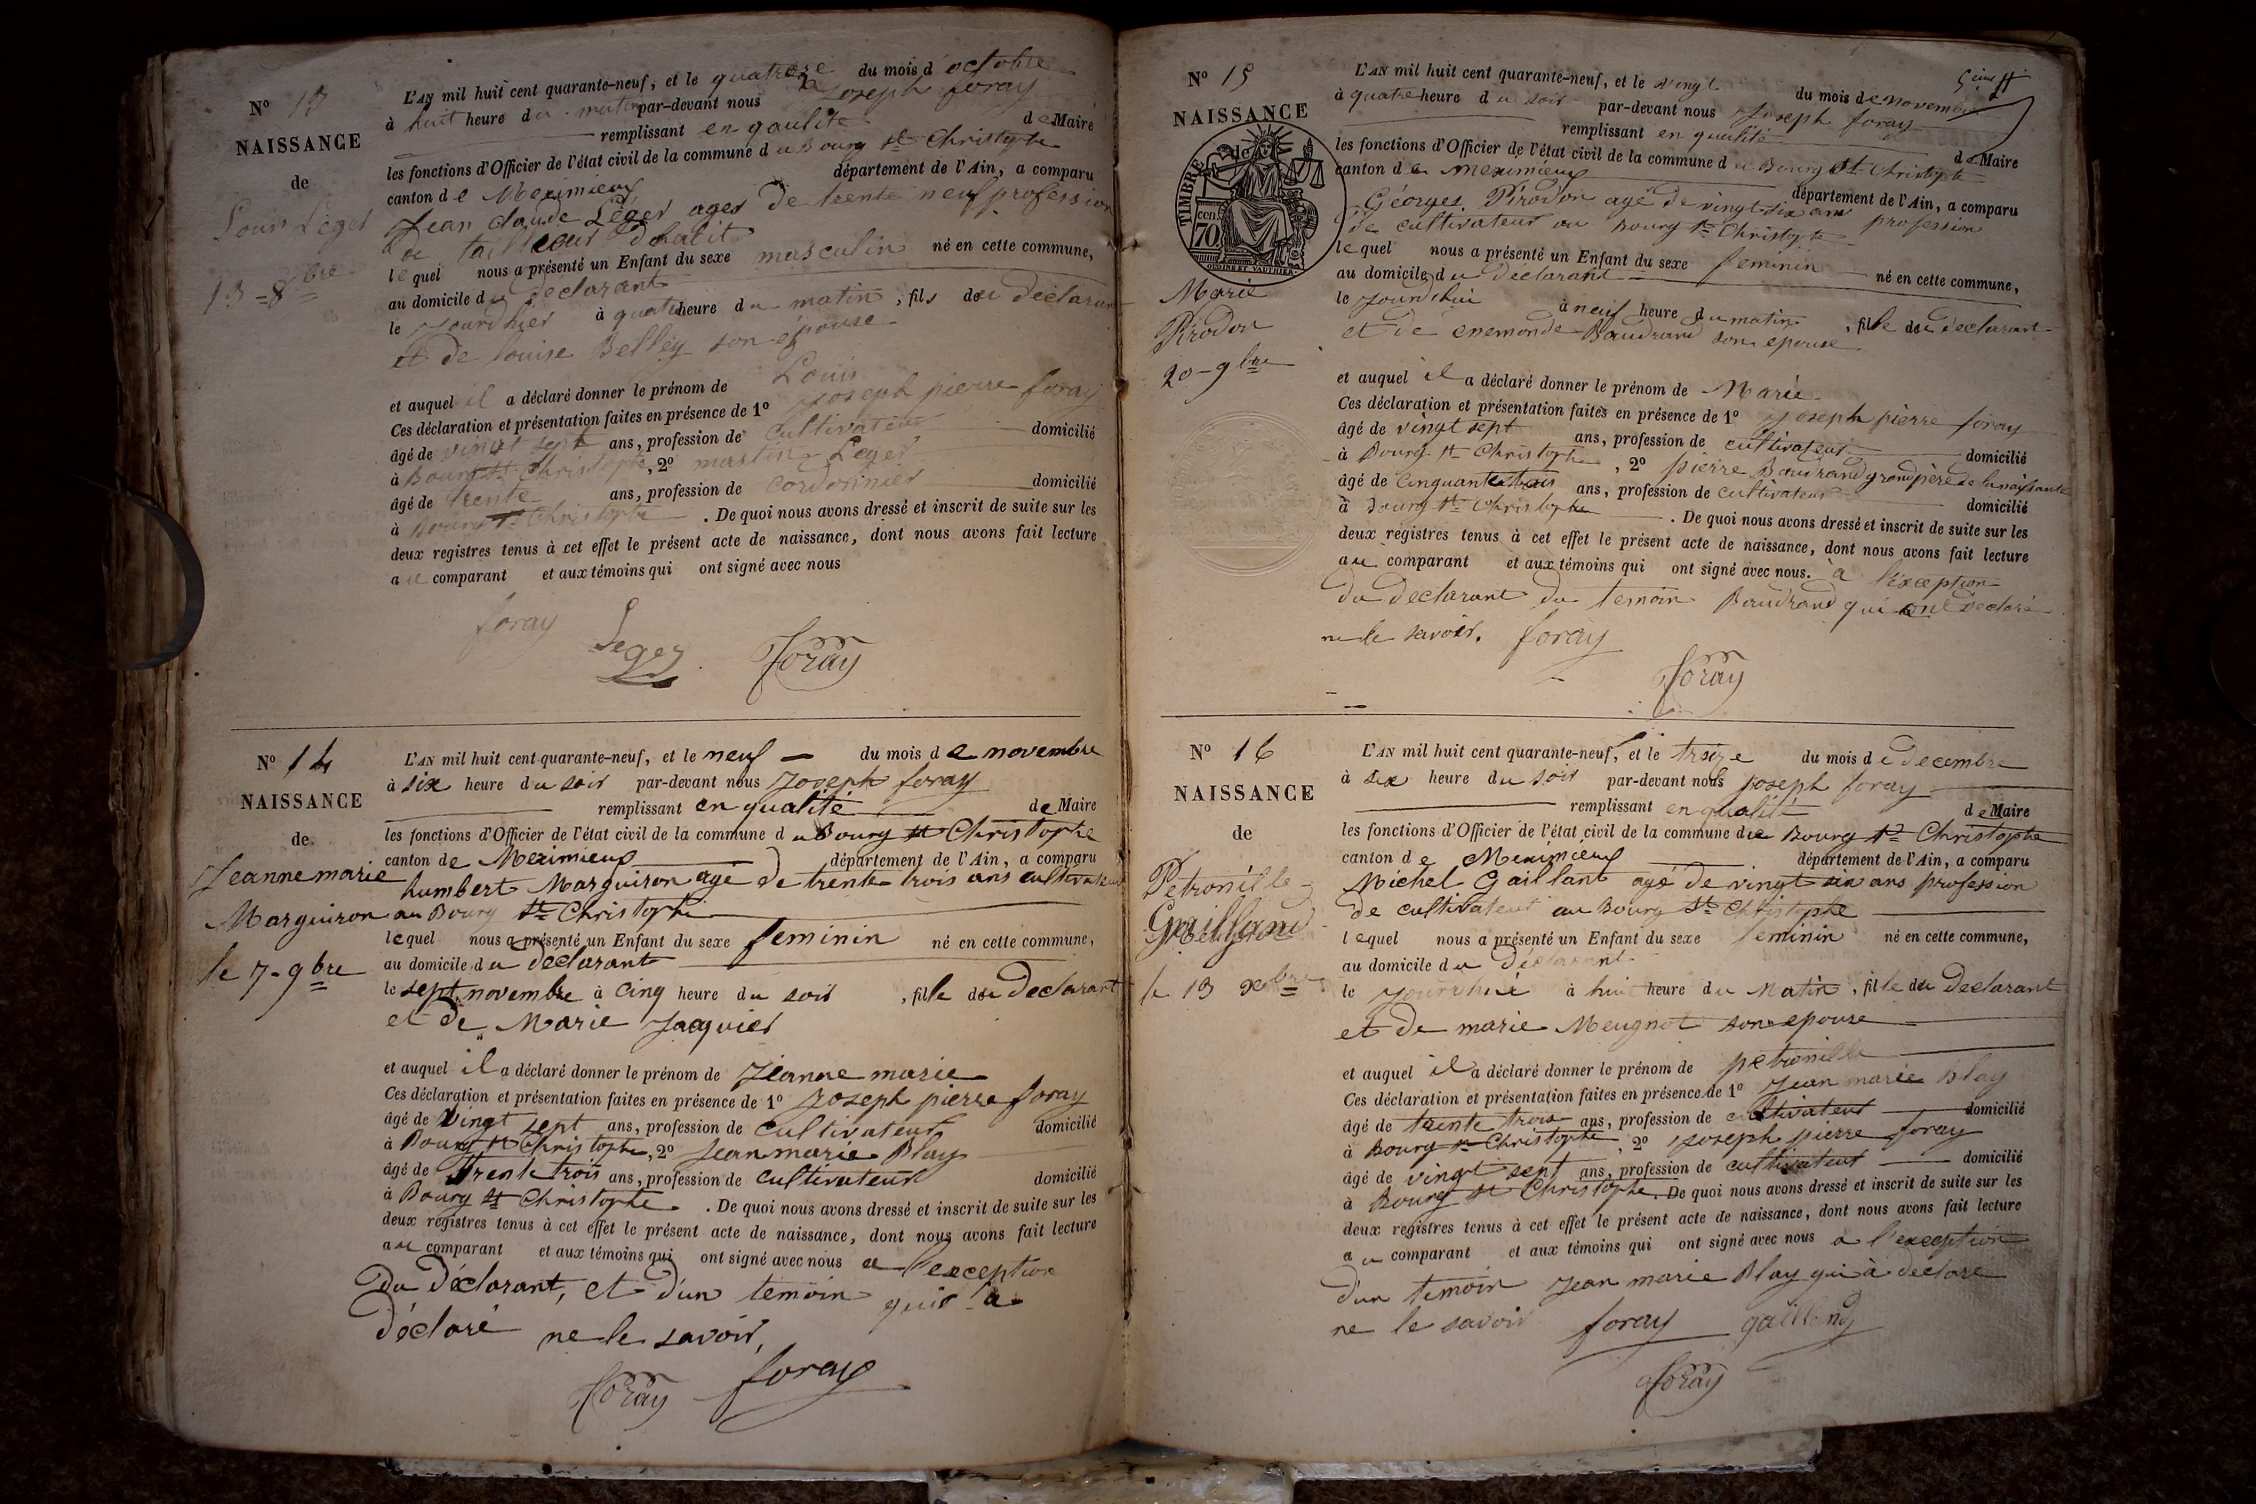 N° 13
NAISSANCE
de
Louis Léger
13 - 8bre
L'AN mil huit cent quarante-neuf, et le quatorze du mois d'octobre
à huit heure du matin par-devant nous Joseph foray
remplissant en qualité de Maire
les fonctions d'Officier de l'état civil de la commune du Bourg St Christophe
canton de Meximieux département de l'Ain, a comparu
Jean claude Léger ager de trente neuf profession
de tailleur d'habit
lequel nous a présenté un Enfant du sexe masculin né en cette commune,
au domicile du declarant
le jourdhier à quatre heure du matin, fils du declarant
et de louise Belley son épouse
et auquel il a déclaré donner le prénom de Louis
Ces déclaration et présentation faites en présence de 1° Joseph pierre foray
âgé de vingt sept ans, profession de cultivateur domicilié
à Bourg St Christophe, 2° martin Leger
âgé de trente ans, profession de cordonnier domicilié
à Bourg St Christophe. De quoi nous avons dressé et inscrit de suite sur les
deux registres tenus à cet effet le présent acte de naissance, dont nous avons fait lecture
au comparant et aux témoins qui ont signé avec nous
foray Leger Foray
N° 14
NAISSANCE
de
Jeanne marie
Marguiron
le 7 - 9bre
L'AN mil huit cent quarante-neuf, et le neuf du mois de novembre
à six heure du soir par-devant nous Joseph foray
remplissant en qualité de Maire
les fonctions d'Officier de l'état civil de la commune du Bourg St Christophe
canton de Meximieux département de l'Ain, a comparu
humbert Marguiron age de trente trois ans cultivateur
au Bourg St Christophe
lequel nous a présenté un Enfant du sexe feminin né en cette commune,
au domicile du déclarant
le sept novembre à cinq heure du soir, fille du Declarant
et de Marie Jacquier
et auquel il a déclaré donner le prénom de Jéanne marie
Ces déclaration et présentation faites en présence de 1° Joseph pierre foray
âgé de vingt sept ans, profession de cultivateur domicilié
à Bourg St Christophe, 2° Jean marie Blay
âgé de trente trois ans, profession de cultivateur domicilié
à Bourg St Christophe. De quoi nous avons dressé et inscrit de suite sur les
deux registres tenus à cet effet le présent acte de naissance, dont nous avons fait lecture
au comparant et aux témoins qui ont signé avec nous a l'exception
Du Déclarant, et d'un témoin qui a
Déclaré ne le savoir,
Foray foray
N° 15
NAISSANCE
de
TIMBRE
70 cen
Marie
Pirodon
20 - 9bre
L'AN mil huit cent quarante-neuf, et le vingt du mois de novembre
à quatre heure du soir par-devant nous Joseph foray
remplissant en qualité de Maire
les fonctions d'Officier de l'état civil de la commune du Bourg St Christophe
canton de Meximieux département de l'Ain, a comparu
Géorges Pirodon agé de vingt six ans profession
de cultivateur au Bourg St Christophe
lequel nous a présenté un Enfant du sexe feminin né en cette commune,
au domicile du declarant
le jourdhui à neuf heure du matin, fille du déclarant
et de enemonde Baudrand son epouse
et auquel il a déclaré donner le prénom de Marie
Ces déclaration et présentation faites en présence de 1° Joseph pierre foray
âgé de vingt sept ans, profession de cultivateur domicilié
à Bourg St Christophe, 2° pierre Baudrand grand père de la naissante
âgé de cinquante trois ans, profession de cultivateur domicilié
à Bourg St Christophe. De quoi nous avons dressé et inscrit de suite sur les
deux registres tenus à cet effet le présent acte de naissance, dont nous avons fait lecture
au comparant et aux témoins qui ont signé avec nous. a l'exception
du declarant du temoin Baudrand qui ont déclaré
ne le savoir. foray
Foray
N° 16
NAISSANCE
de
Pétronille
Gailland
le 13 xbre
L'AN mil huit cent quarante-neuf, et le treize du mois de decembre
à six heure du soir par-devant nous Joseph foray
remplissant en qualité de Maire
les fonctions d'Officier de l'état civil de la commune de Bourg St Christophe
canton de Meximieux département de l'Ain, a comparu
Michel Gaillant agé de vingt six ans profession
de cultivateur au Bourg St Christophe
lequel nous a présenté un Enfant du sexe feminin né en cette commune,
au domicile du Déclarant
le jourdhui à huit heure du matin, fille du Declarant
et de marie Meugnot son epouse
et auquel il a déclaré donner le prénom de petronille
Ces déclaration et présentation faites en présence de 1° Jean marie Blay
âgé de trente trois ans, profession de cultivateur domicilié
à Bourg St Christophe, 2° Joseph pierre foray
âgé de vingt sept ans, profession de cultivateur domicilié
à Bourg St Christophe. De quoi nous avons dressé et inscrit de suite sur les
deux registres tenus à cet effet le présent acte de naissance, dont nous avons fait lecture
au comparant et aux témoins qui ont signé avec nous a l'exception
d'un temoin Jean marie Blay qui a déclaré
ne le savoir foray gailland
Foray